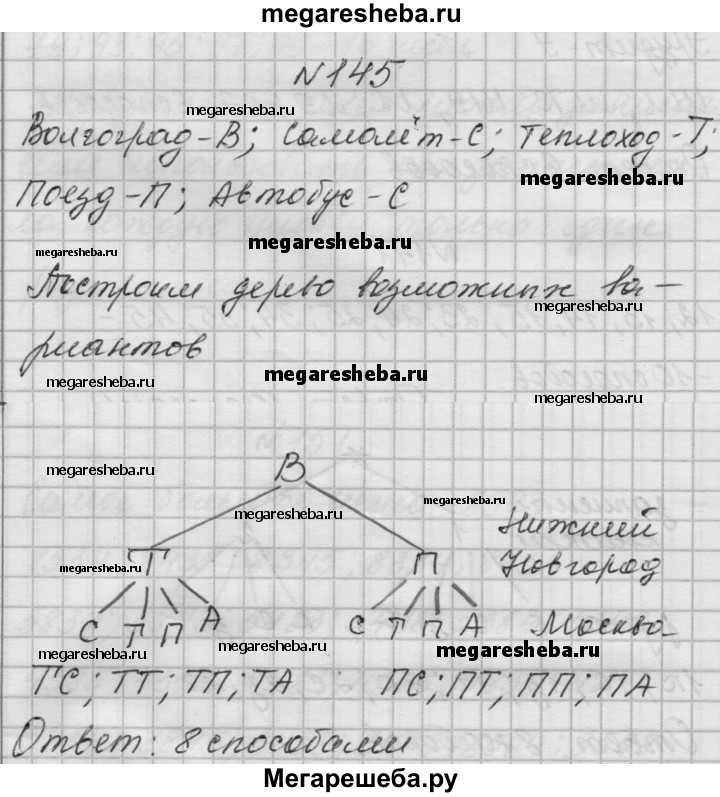 megaresheba.ru
N145
megaresheba.ru
Волгоград-В; Самолёт-С; Теплоход-Т;
megaresheba.ru
Поезд-П; Автобус-С
megaresheba.ru
megaresheba.ru
Построим дерево возможных ва-
megaresheba.ru
риантов
megaresheba.ru
megaresheba.ru
megaresheba.ru
megaresheba.ru
В
megaresheba.ru
megaresheba.ru
Нижний
Т П Новгород
megaresheba.ru
megaresheba.ru
С Т П А С Т П А Москва
megaresheba.ru
megaresheba.ru
megaresheba.ru
ТС; ТТ; ТП; ТА ПС; ПТ; ПП; ПА
Ответ: 8 способами
Мегарешеба.ру